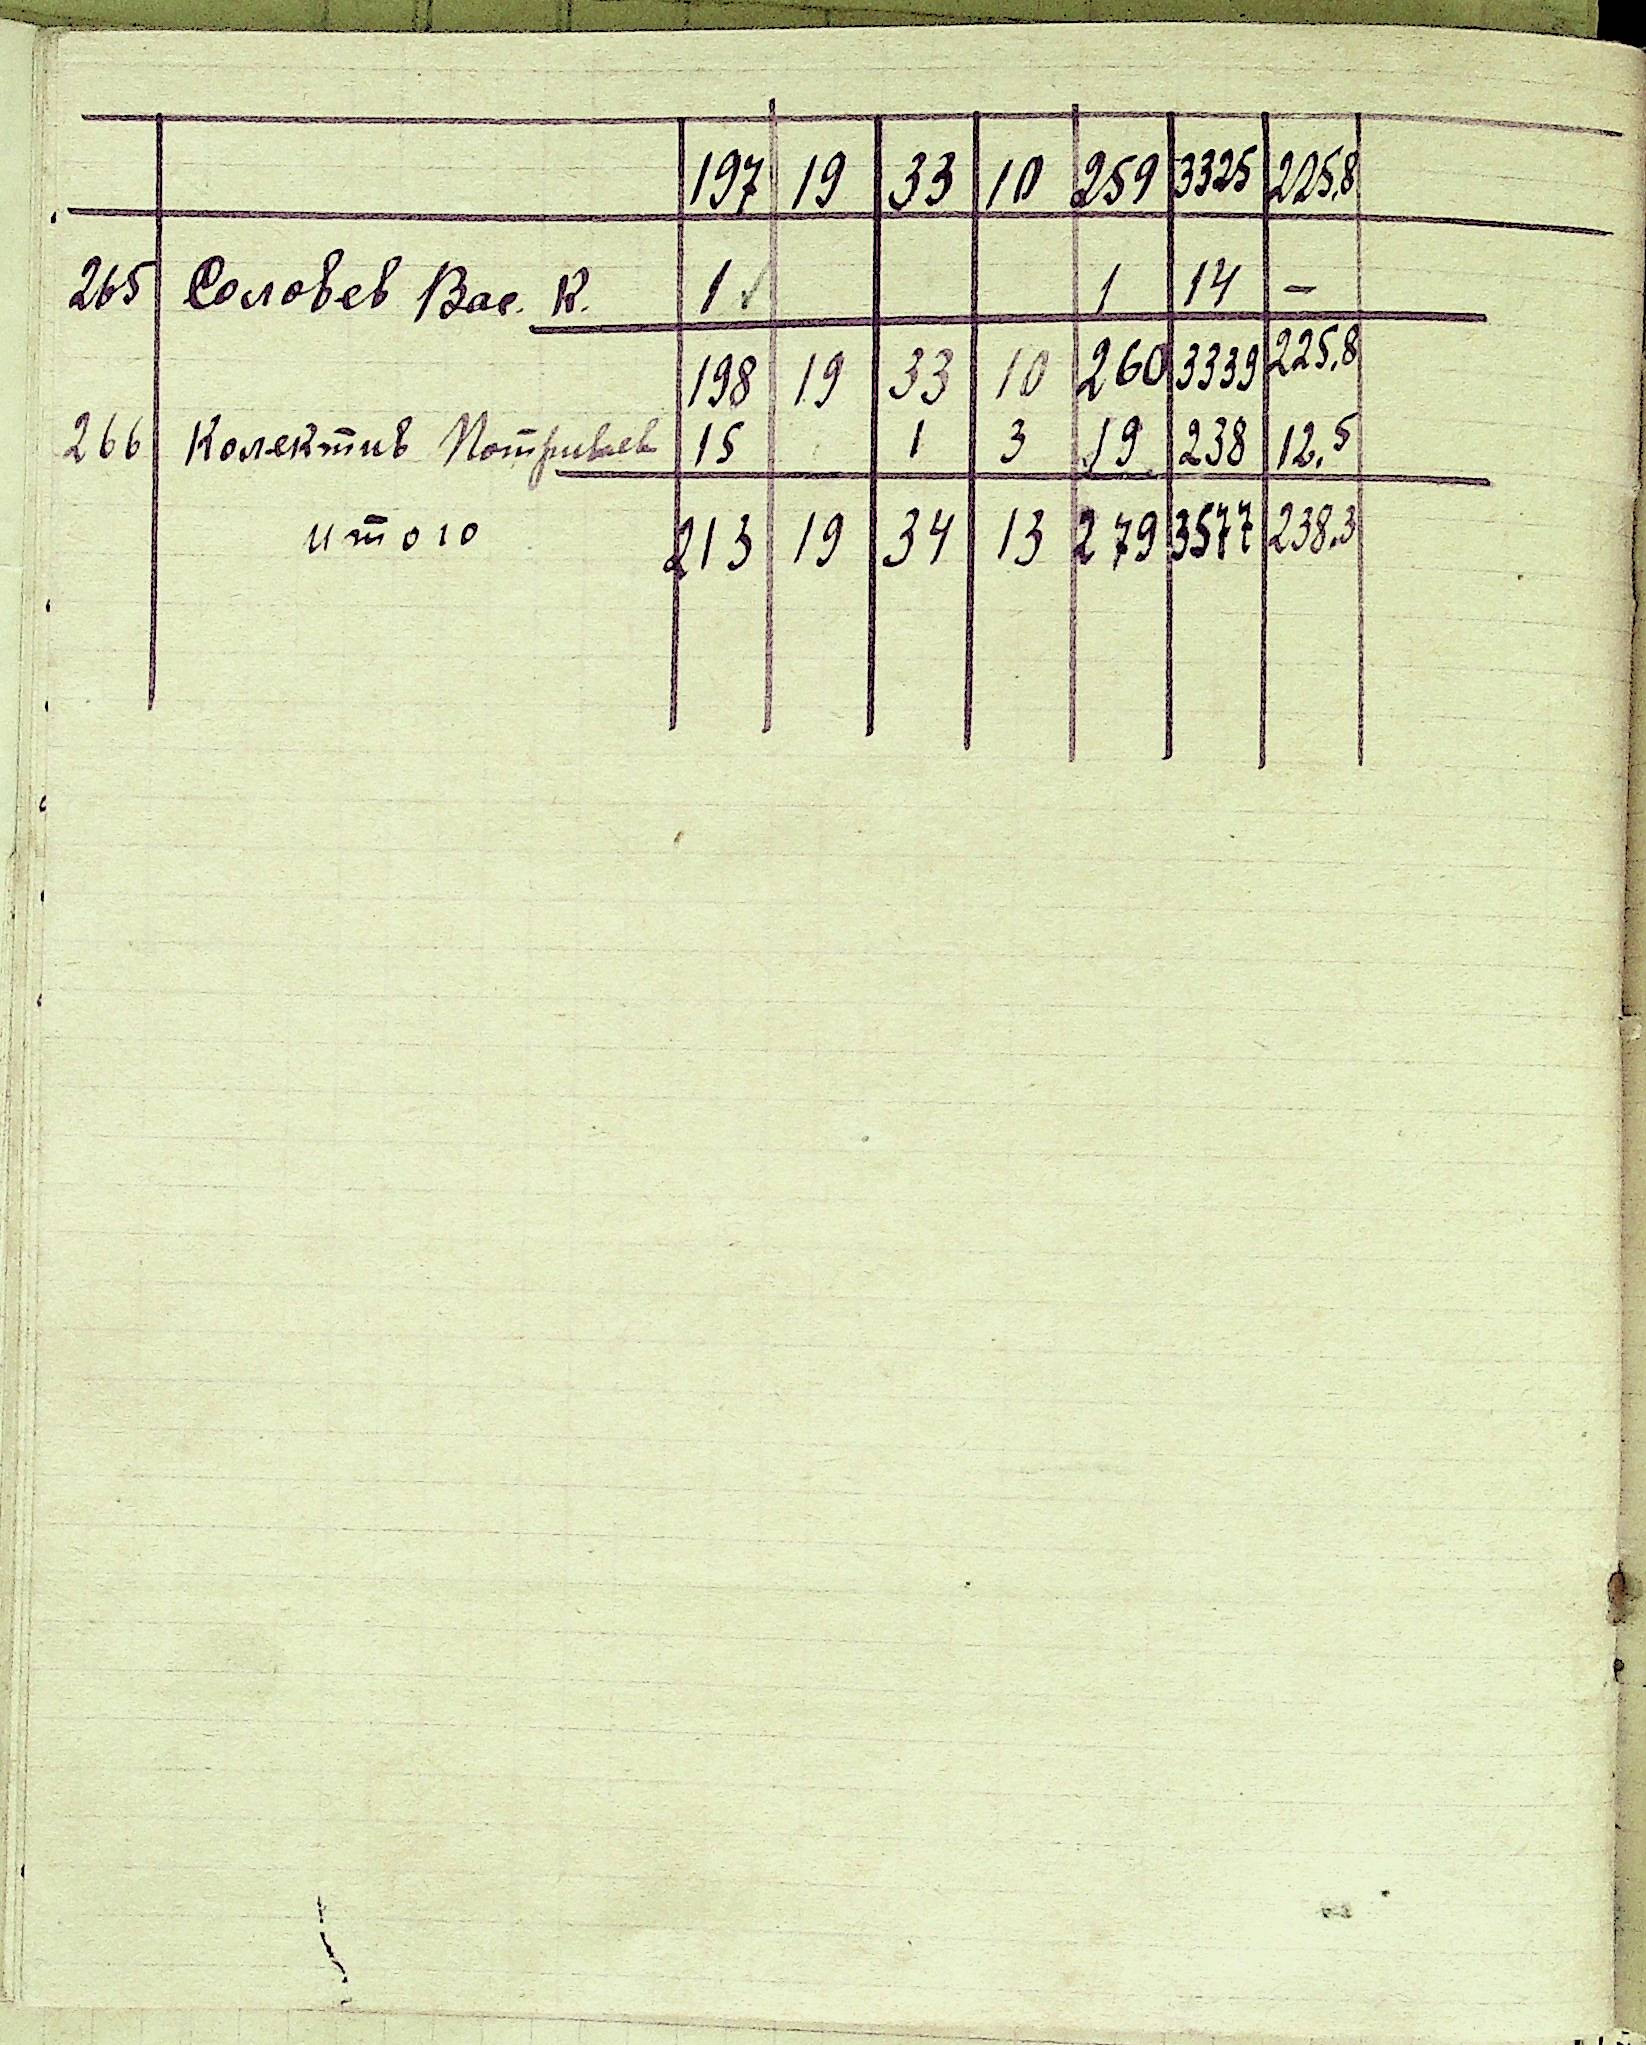 197 19 33 10 259 3325 225,8
265 Соловев Вас. К. 1 1 14 —
198 19 33 10 260 3339 225,8
266 Колектив 15 1 3 19 238 12,5
итого 213 19 34 13 279 3577 238,3